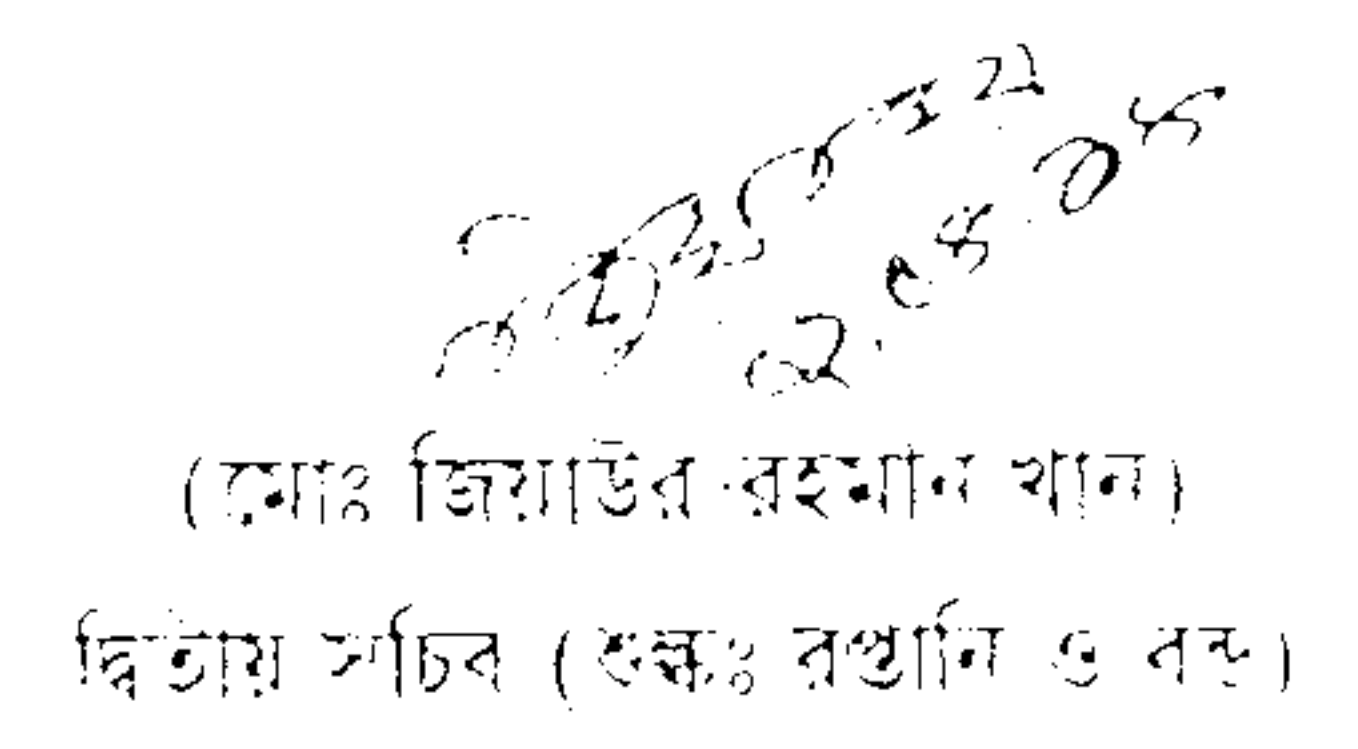 (মোঃ জিয়াউর রহমান খান)
দ্বিতীয় সচিব (শুল্কঃ রপ্তানি ও বন্ড)